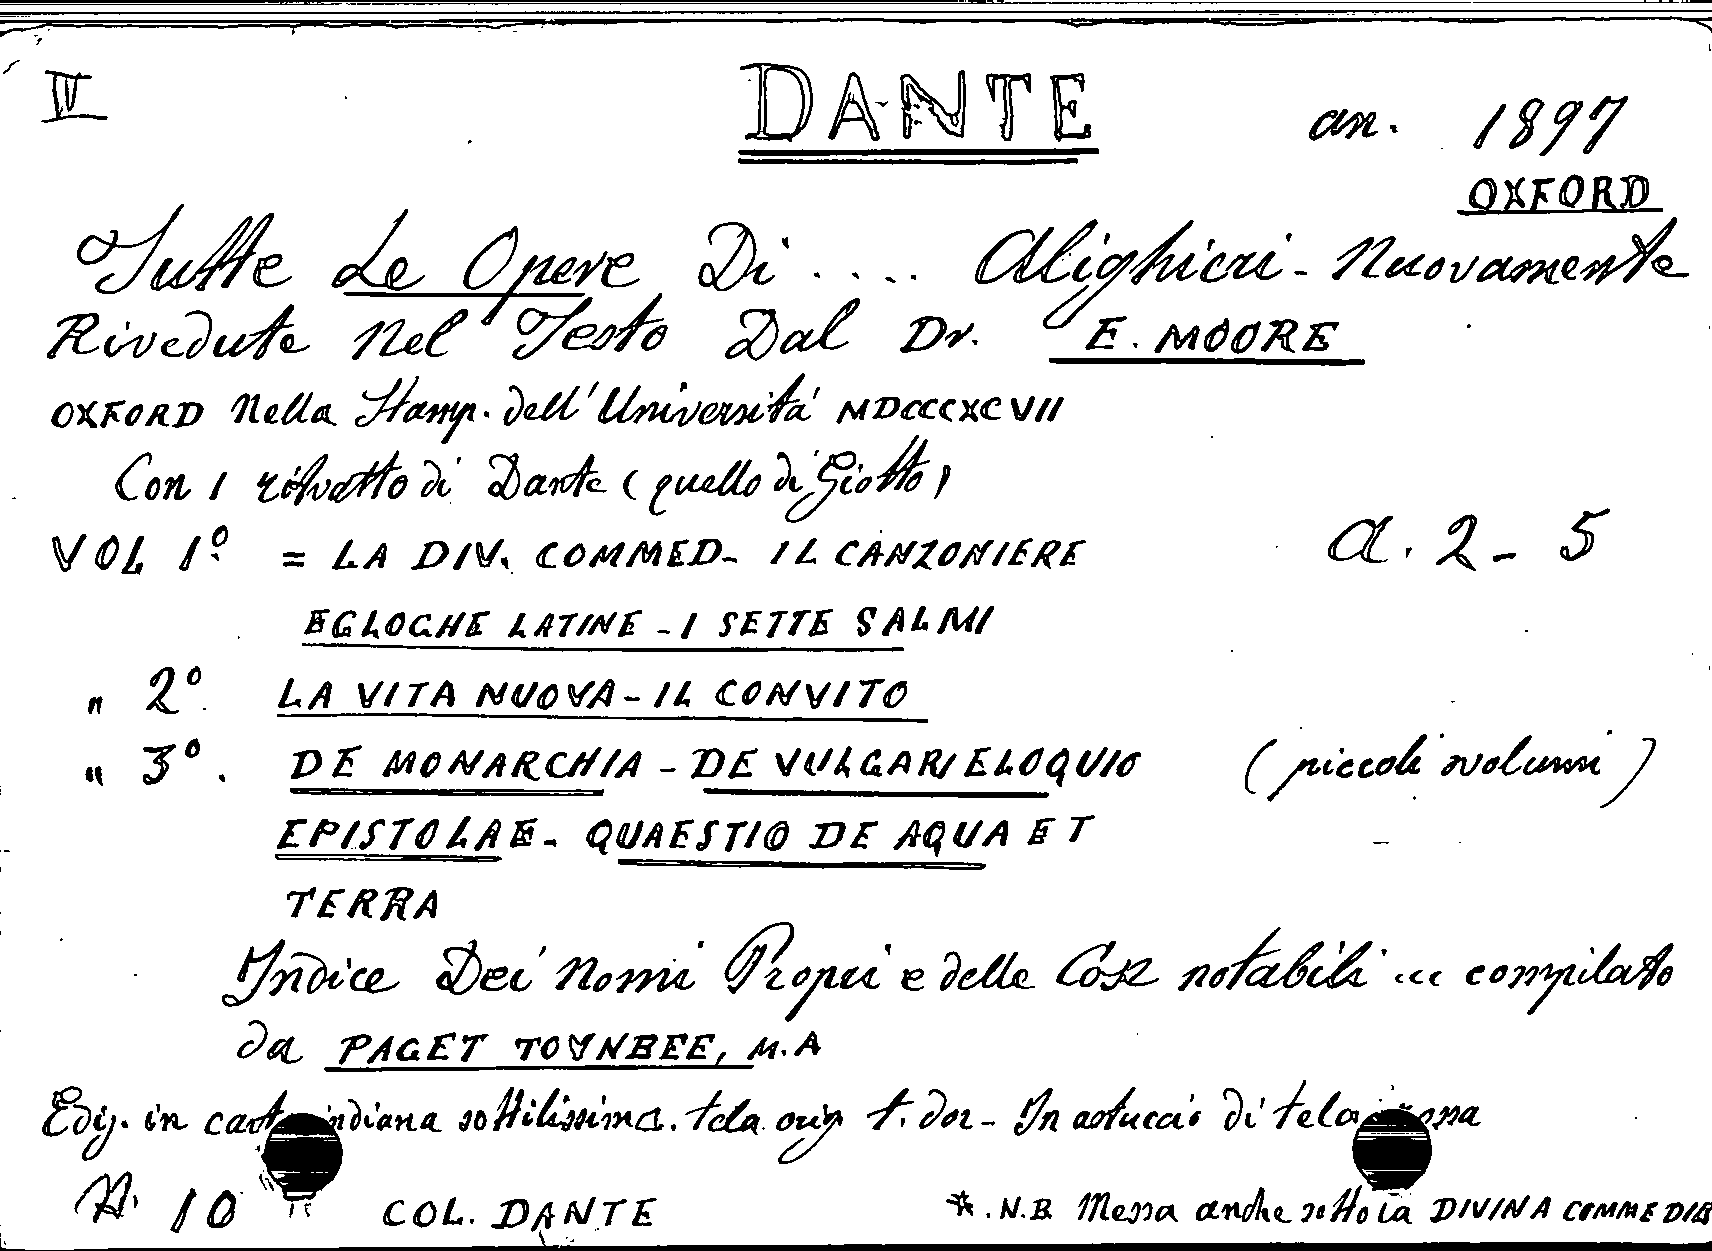 IV DANTE an. 1897
OXFORD
Tutte Le Opere Di .... Alighieri - Nuovamente
Rivedute Nel Testo Dal Dr. E. MOORE
OXFORD Nella Stamp. dell'Universitá MDCCCXCVII
Con 1 ritratto di Dante (quello di Giotto)
VOL 1º = LA DIV. COMMED- IL CANZONIERE A. 2 - 5
EGLOGHE LATINE - I SETTE SALMI
" 2º LA VITA NUOVA - IL CONVITO
" 3º. DE MONARCHIA - DE VULGARI ELOQUIO (piccoli volumi)
EPISTOLAE - QUAESTIO DE AQUA ET
TERRA
Indice Dei Nomi Propri e delle Cose notabili ... compilato
da PAGET TOYNBEE, M.A
Ediz. in carta indiana sottilissima. tela orig t. dor - In astuccio di tela rossa
N. 10 COL. DANTE *. N.B Messa anche sotto la DIVINA COMMEDIA